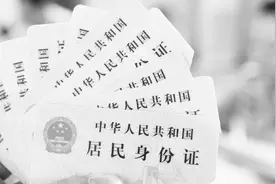 中华人民共和国
中华人民共和国
中华人民共和国
中华人民共和国
中华人民共和国
中华人民共和国
居民身份证